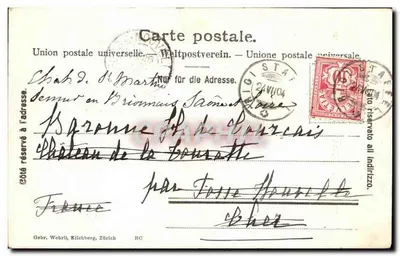 Carte postale.
Union postale universelle. — Weltpostverein. — Unione postale universale.
Nur für die Adresse.
Chat de St Martin
Semur en Brionnais Saône et Loire
Baronne
Château de la
par Fosse Nouvelle
France Cher
Côté réservé à l'adresse.
Lato riservato all indirizzo.
RIGI STAFFEL
VII 04
10
Gebr. Wehrli, Kilchberg, Zürich BC